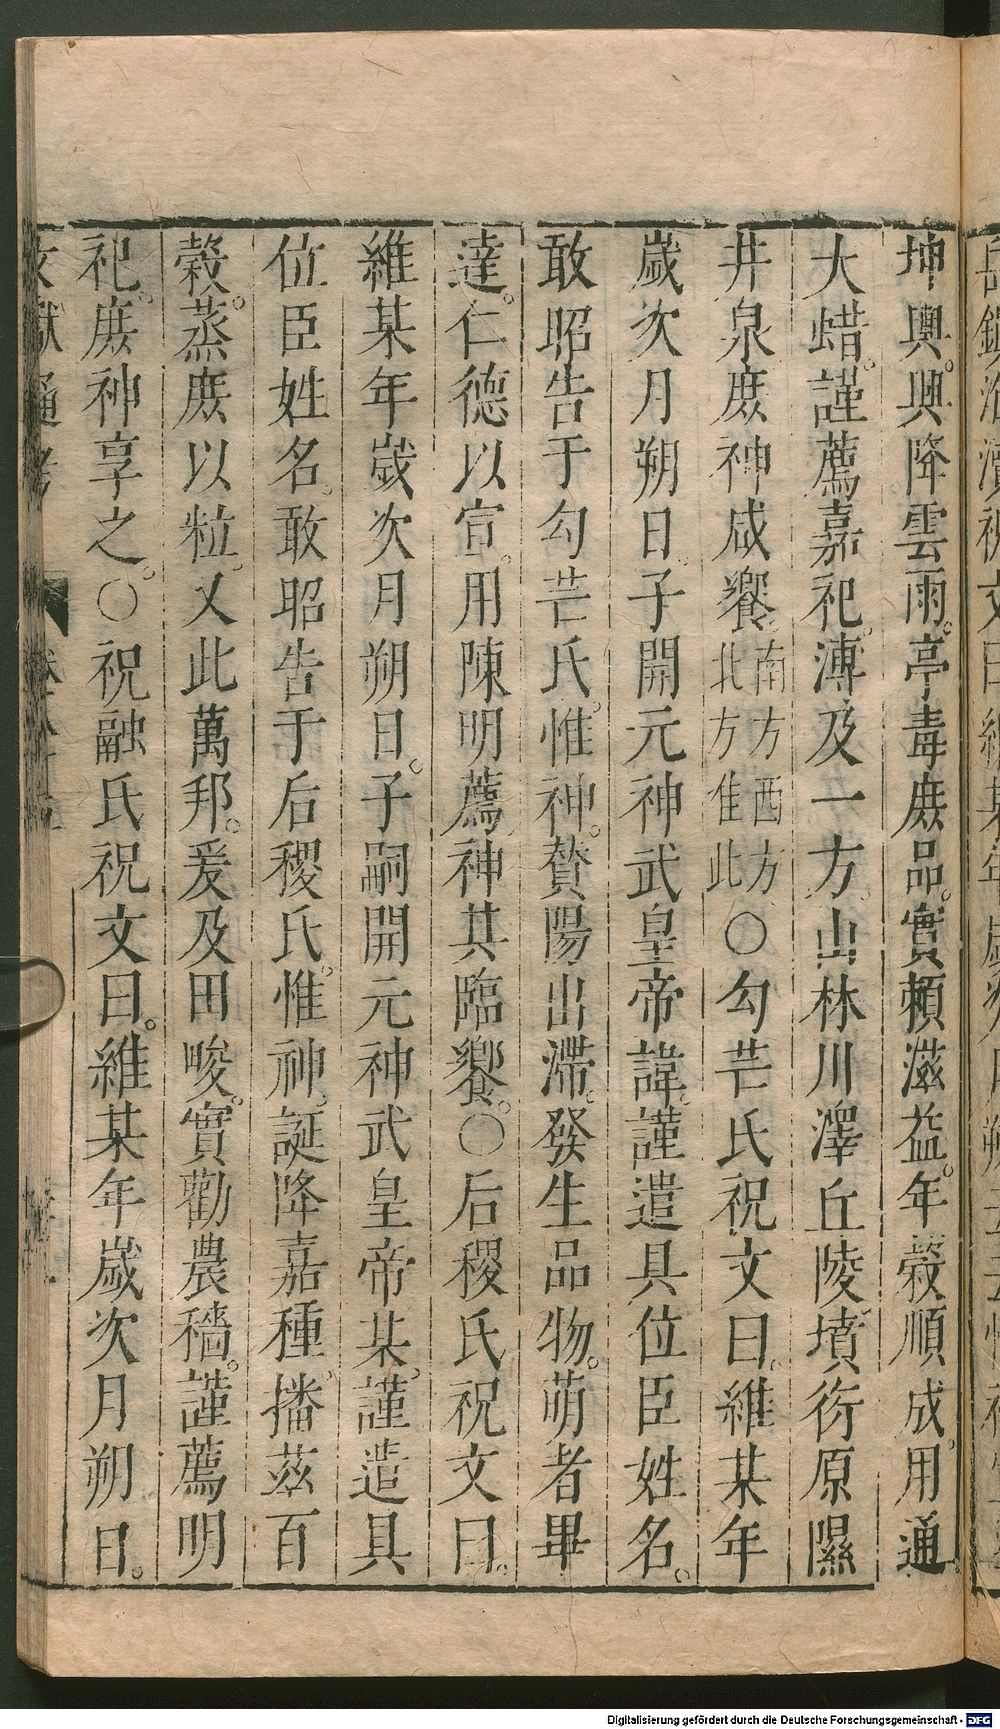 坤輿。興降雲雨。亭毒庶品。實賴滋益。年穀順成。用通
大蜡。謹薦嘉祀。溥及一方。山林川澤丘陵墳衍原隰
井泉庶神咸饗南方西方北方惟此○勾芒氏祝文曰。維某年
歲次月朔日子開元神武皇帝諱。謹遣具位臣姓名。
敢昭告于勾芒氏。惟神。贊陽出滯。發生品物。萌者畢
達。仁德以宣。用陳明薦。神其臨饗。○后稷氏祝文曰。
維某年歲次月朔日。子嗣開元神武皇帝某。謹遣具
位臣姓名。敢昭告于后稷氏。惟神。誕降嘉種。播茲百
穀。蒸庶以粒。乂此萬邦。爰及田畯。實勸農穡。謹薦明
祀。庶神享之。○祝融氏祝文曰。維某年歲次月朔日。
文獻通考
Digitalisierung gefördert durch die Deutsche Forschungsgemeinschaft - DFG